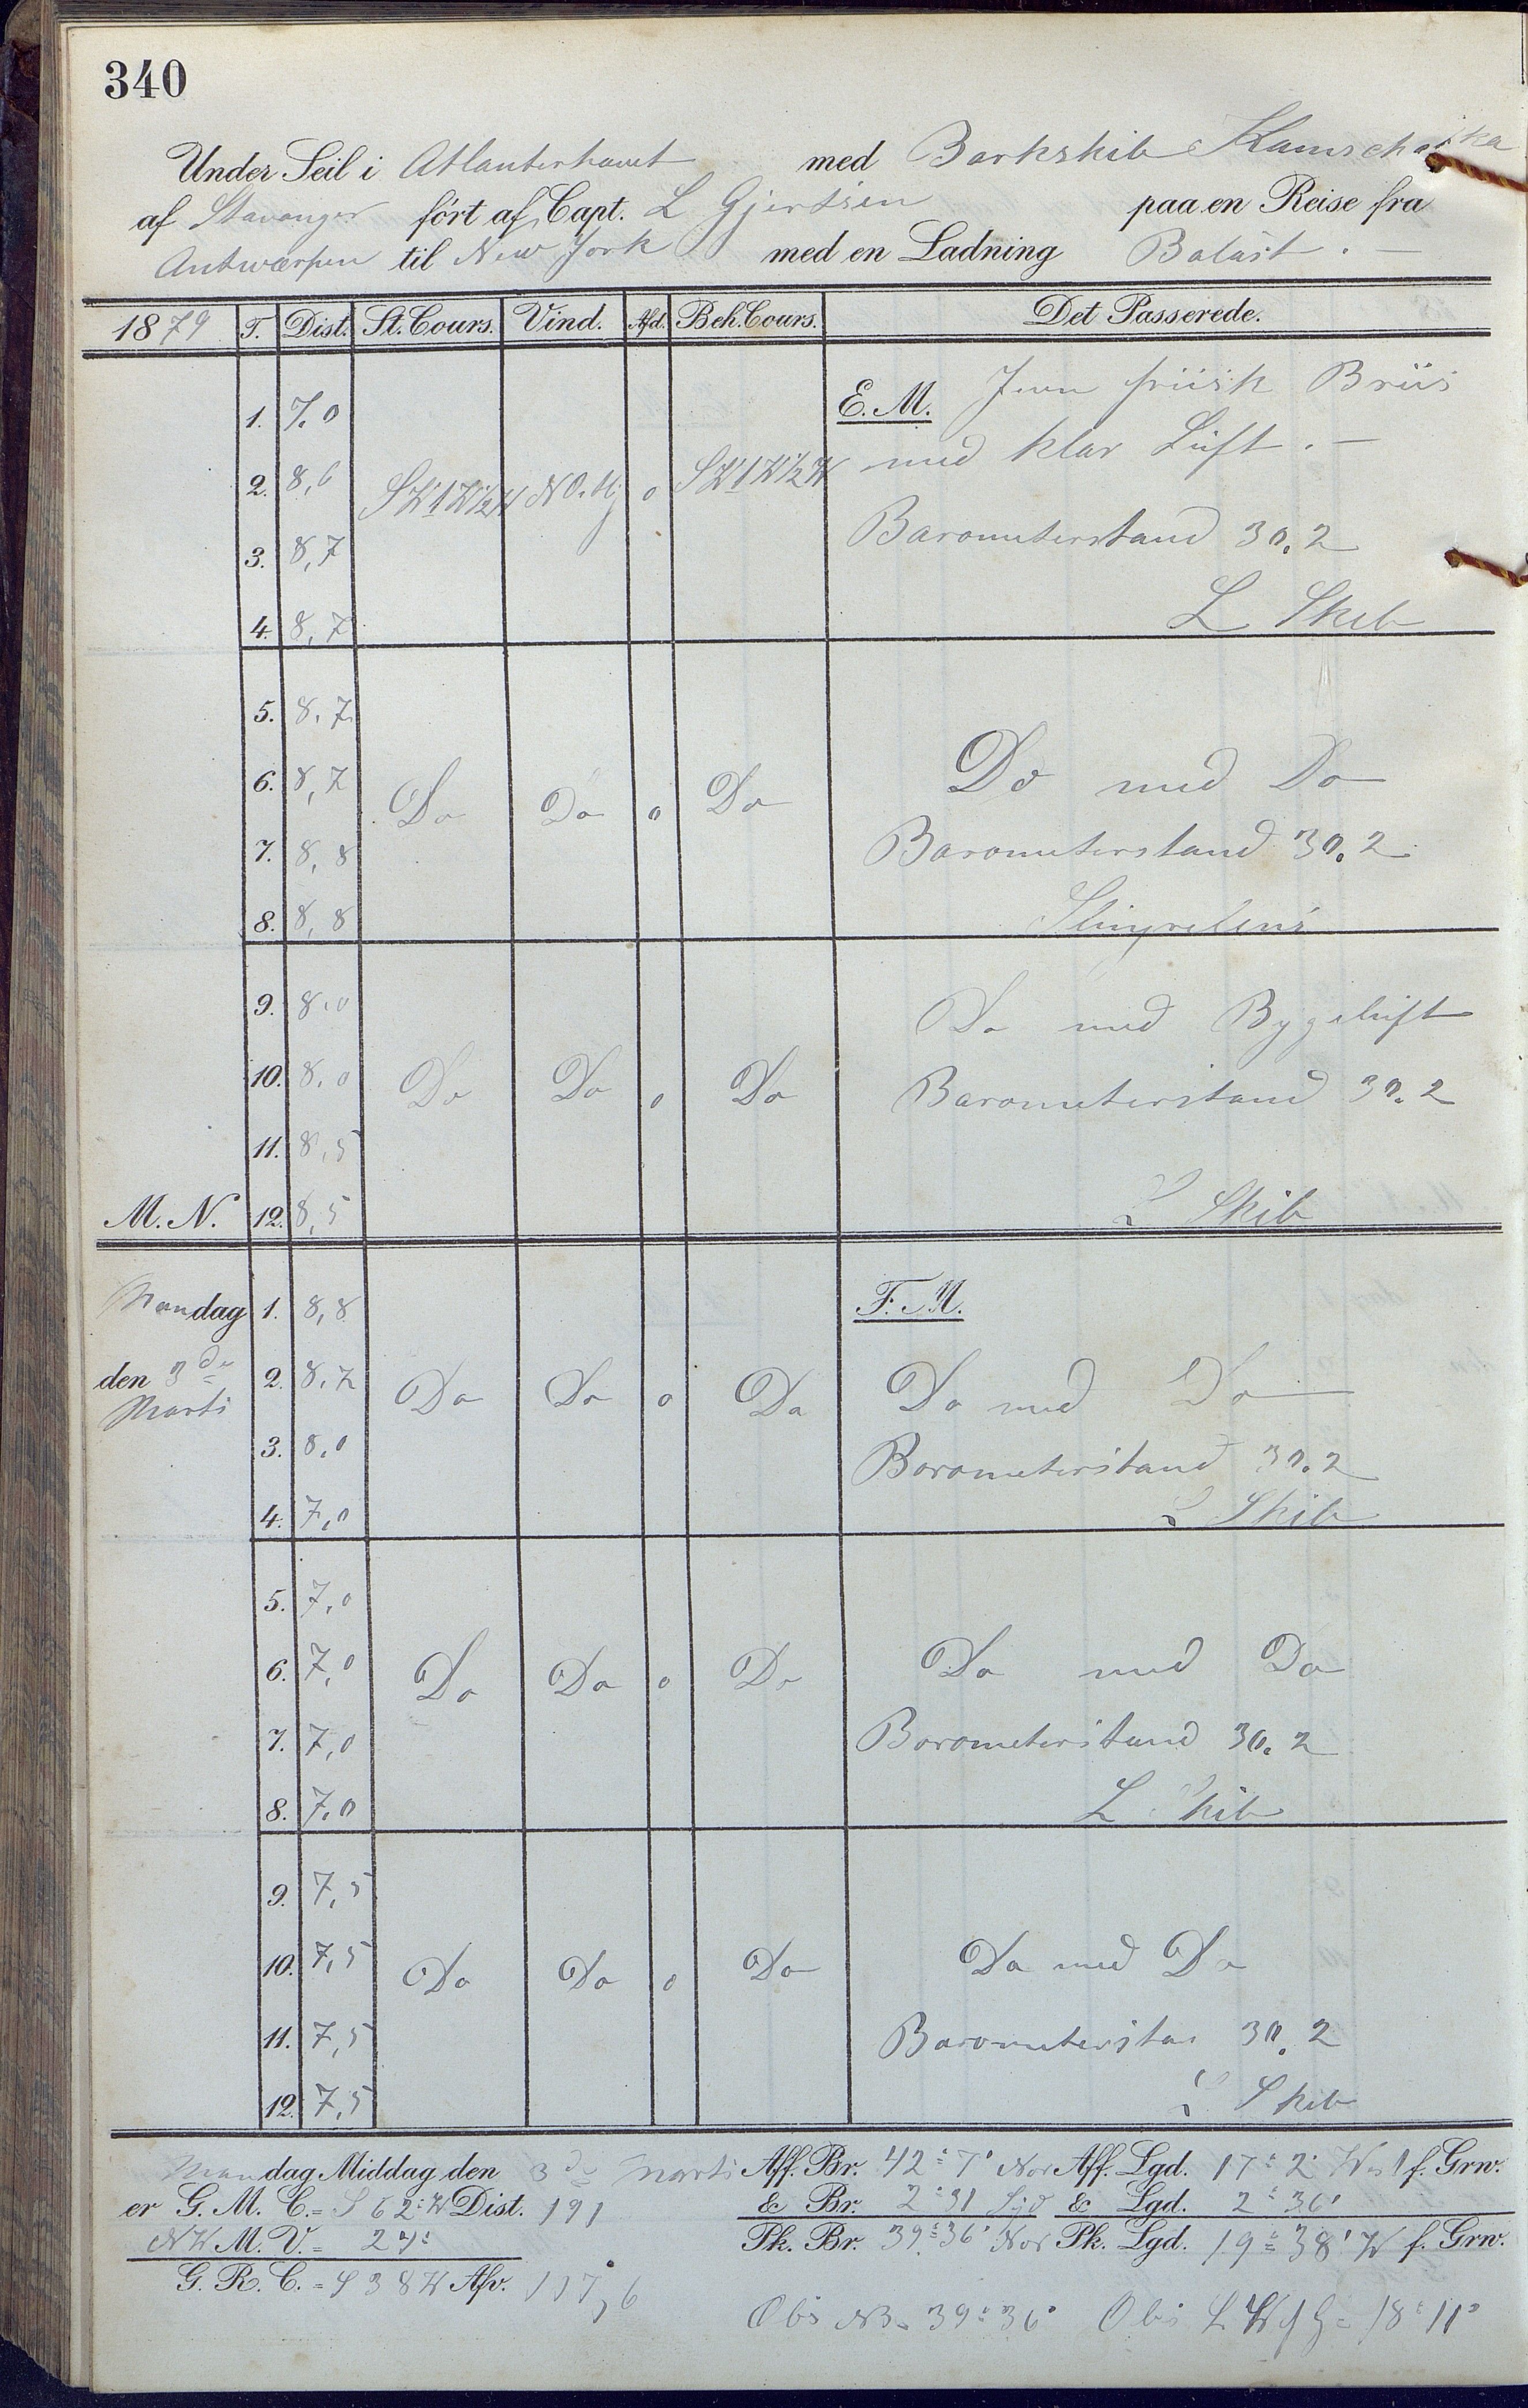 340
Under Seil i Atlanterhavet med Barkskib Kamschatka
af Stavanger ført af Capt. L Gjertsen paa en Reise fra
Antwerpen til New York med en Ladning Balast. —
1879 T. Dist. St. Cours. Vind. Afd. Beh. Cours. Det Passerede.
E. M. Jevn friisk Briis
1. 7.0
med klar Luft. —
2. 8,6 SW t W ½ W NO. lig 0 SW t W ½ W
Barometerstand 30.2
3. 8,7
4. 8,7 L Skib
5. 8.7
6. 8,7 Do Do 0 Do Do med Do
7. 8,8 Barometerstand 30.2
8. 8,8
9. 8.0 Do med Bygeluft
10. 8.0 Do Do 0 Do Barometerstand 30.2
11. 8,5
M. N. 12. 8,5 L Skib
Mandag 1. 8,8 F. M.
den 3de 2. 8.2 Do Do 0 Do Do med Do
Marts
3. 8.0 Barometerstand 30.2
4. 7,0 L Skib
5. 7,0
6. 7,0 Do Do 0 Do Do med Do
7. 7,0 Barometerstand 30.2
8. 7.0 L Skib
9. 7,5
10. 7,5 Do Do 0 Do Do med Do
11. 7,5 Barometerstan 30.2
12. 7,5 L Skib
Mandag Middag den 3de Marts Aff. Br. 42° 7' Nor Aff. Lgd. 17° 2' West f. Grw.
er G. M. C. = S 62° W Dist. 191 & Br. 2° 31 Syd & Lgd. 2° 36'
NW M. V. = 24° Pk. Br. 39° 36' Nor Pk. Lgd. 19° 38' W f. Grw.
G. R. C. = S 38 W Afv. 117,6
Obs NB = 39° 36' Obs L W f G = 18° 11'